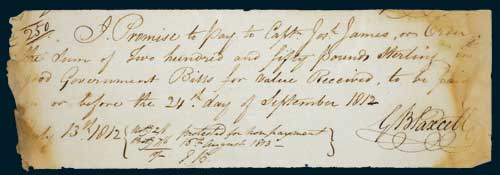 250
I Promise to pay to Captn. Josh. James, or Order
the Sum of Two hundred and fifty Pounds Sterling in
good Government Bills for Value Received, to be paid
on or before the 24th. day of September 1812
13th. 1812
Protested for nonpayment
15th August 1813
GBlaxcell